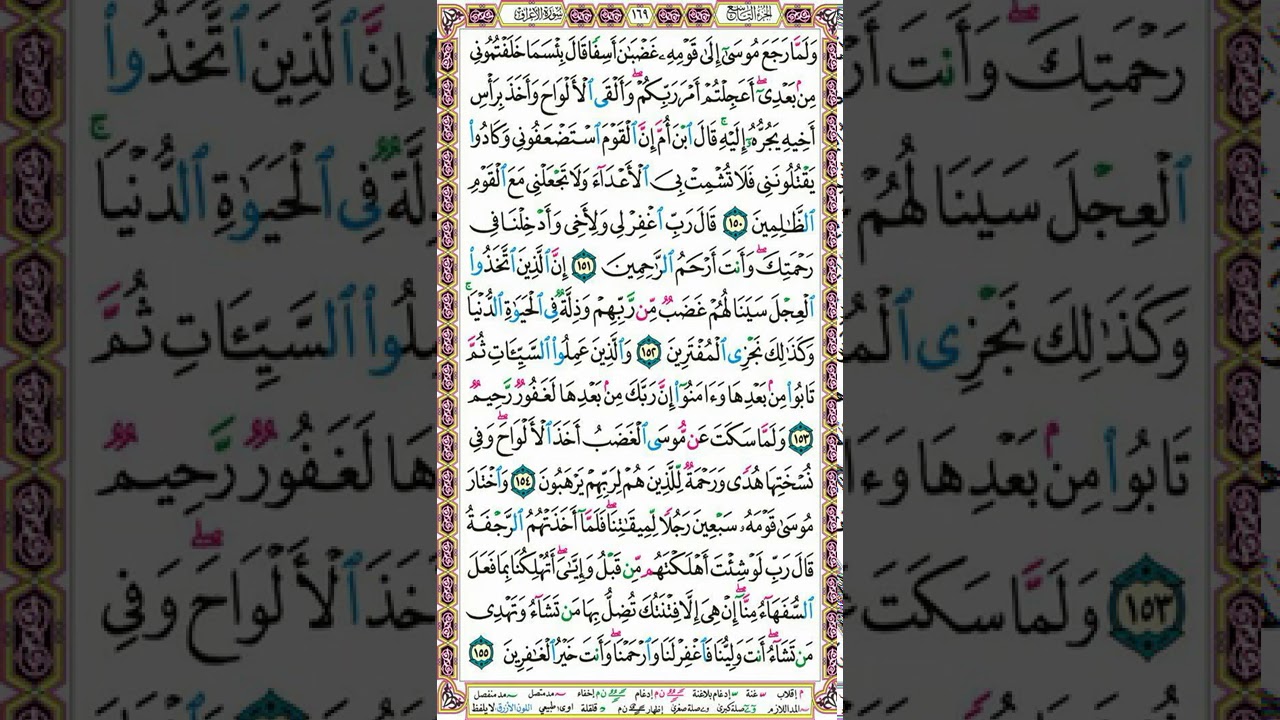 الجزء التاسع
١٦٩
سورة الأعراف
وَلَمَّا رَجَعَ مُوسَىٰٓ إِلَىٰ قَوْمِهِۦ غَضْبَٰنَ أَسِفًا قَالَ بِئْسَمَا خَلَفْتُمُونِي
مِنۢ بَعْدِيٓۖ أَعَجِلْتُمْ أَمْرَ رَبِّكُمْۖ وَأَلْقَى ٱلْأَلْوَاحَ وَأَخَذَ بِرَأْسِ
أَخِيهِ يَجُرُّهُۥٓ إِلَيْهِۚ قَالَ ٱبْنَ أُمَّ إِنَّ ٱلْقَوْمَ ٱسْتَضْعَفُونِي وَكَادُوا۟
يَقْتُلُونَنِي فَلَا تُشْمِتْ بِيَ ٱلْأَعْدَآءَ وَلَا تَجْعَلْنِي مَعَ ٱلْقَوْمِ
ٱلظَّٰلِمِينَ ١٥٠ قَالَ رَبِّ ٱغْفِرْ لِي وَلِأَخِي وَأَدْخِلْنَا فِي
رَحْمَتِكَۖ وَأَنتَ أَرْحَمُ ٱلرَّٰحِمِينَ ١٥١ إِنَّ ٱلَّذِينَ ٱتَّخَذُوا۟
ٱلْعِجْلَ سَيَنَالُهُمْ غَضَبٌ مِّن رَّبِّهِمْ وَذِلَّةٌ فِي ٱلْحَيَوٰةِ ٱلدُّنْيَاۚ
وَكَذَٰلِكَ نَجْزِي ٱلْمُفْتَرِينَ ١٥٢ وَٱلَّذِينَ عَمِلُوا۟ ٱلسَّيِّـَٔاتِ ثُمَّ
تَابُوا۟ مِنۢ بَعْدِهَا وَءَامَنُوٓا۟ إِنَّ رَبَّكَ مِنۢ بَعْدِهَا لَغَفُورٌ رَّحِيمٌ
١٥٣ وَلَمَّا سَكَتَ عَن مُّوسَى ٱلْغَضَبُ أَخَذَ ٱلْأَلْوَاحَۖ وَفِي
نُسْخَتِهَا هُدًى وَرَحْمَةٌ لِّلَّذِينَ هُمْ لِرَبِّهِمْ يَرْهَبُونَ ١٥٤ وَٱخْتَارَ
مُوسَىٰ قَوْمَهُۥ سَبْعِينَ رَجُلًا لِّمِيقَٰتِنَاۖ فَلَمَّآ أَخَذَتْهُمُ ٱلرَّجْفَةُ
قَالَ رَبِّ لَوْ شِئْتَ أَهْلَكْتَهُم مِّن قَبْلُ وَإِيَّٰيَۖ أَتُهْلِكُنَا بِمَا فَعَلَ
ٱلسُّفَهَآءُ مِنَّآۖ إِنْ هِيَ إِلَّا فِتْنَتُكَ تُضِلُّ بِهَا مَن تَشَآءُ وَتَهْدِي
مَن تَشَآءُۖ أَنتَ وَلِيُّنَا فَٱغْفِرْ لَنَا وَٱرْحَمْنَاۖ وَأَنتَ خَيْرُ ٱلْغَٰفِرِينَ ١٥٥
م إقلاب غنة إدغام بلاغنة ن م إدغام ن م إخفاء مد متصل مد منفصل
المد اللازم صلة كبرى صلة صغرى إظهار ن م قلقلة اوى: طبيعي اللون الأزرق: لا يلفظ